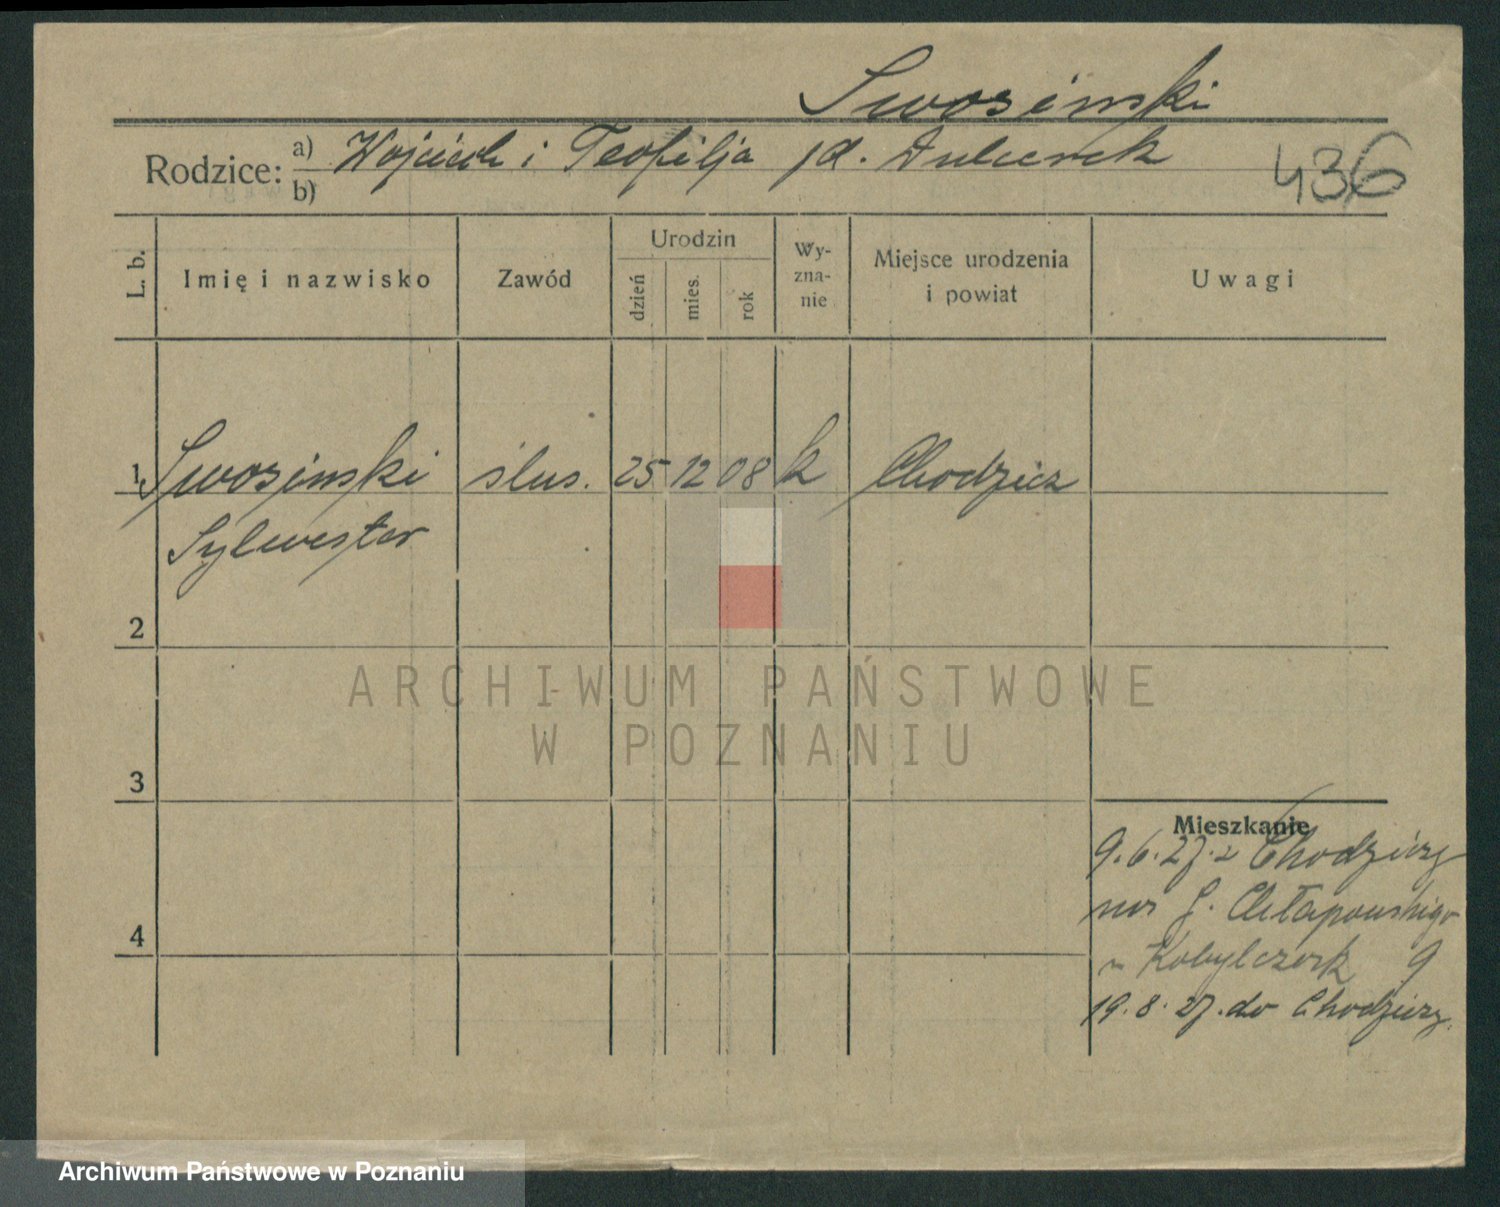 Swosinski
Rodzice: a) Wojciech i Teofilja jd.
b)
436
L. b.
Imię i nazwisko
Zawód
Urodzin
dzień
mies.
rok
Wy-
zna-
nie
Miejsce urodzenia
i powiat
Uwagi
1 Swosinski ślus. 25 12 08 k Chodzież
Sylwester
2
3
4
Mieszkanie
9.6.27. z Chodzieży
Chłapowskiego
9
19.8.27. do Chodzieży.
ARCHIWUM PAŃSTWOWE
W POZNANIU
Archiwum Państwowe w Poznaniu